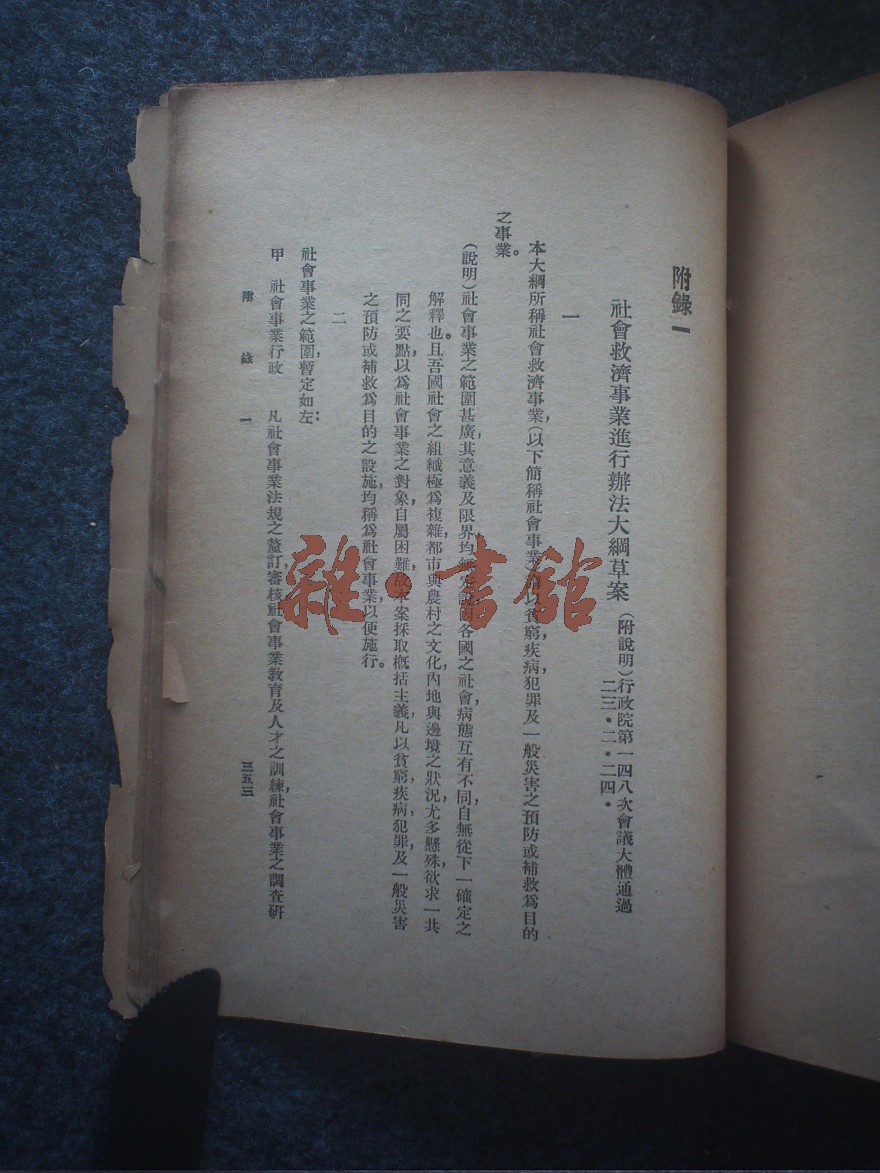 附錄一
社會救濟事業進行辦法大綱草案(附說明)行政院第一四八次會議大體通過
二三・二・二四・
一
本大綱所稱社會救濟事業,(以下簡稱社會事業)以貧窮,疾病犯罪及一般災害之預防或補救爲目的
之事業。
(說明)社會事業之範圍甚廣,其意義及限界均無定說,各國之社會病態互有不同,自無從下一確定之
解釋也。且吾國社會之組織極爲複雜,都市與農村之文化,內地與邊境之狀況,尤多懸殊,欲求一共
同之要點,以爲社會事業之對象,自屬困難,故本案採取概括主義,凡以貧窮,疾病,犯罪,及一般災害
之預防或補救爲目的之設施,均稱爲社會事業,以便施行。
二
社會事業之範圍,暫定如左:
甲 社會事業行政 凡社會事業法規之釐訂,審核,社會事業教育及人才之訓練,社會事業之調查研
附 錄 一
三五三
雜・書館